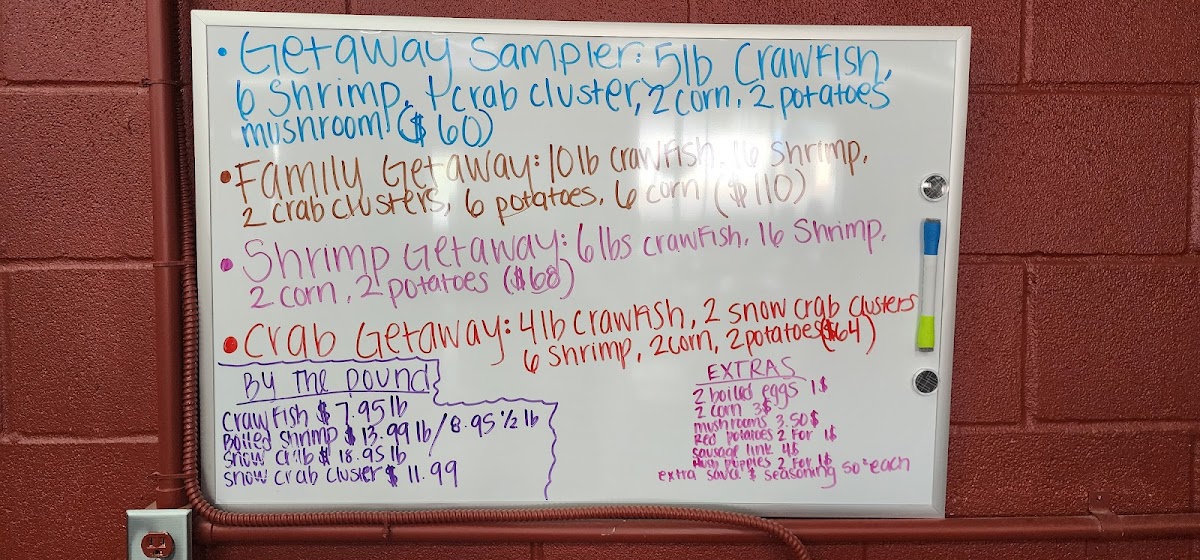 • Getaway Sampler: 5lb Crawfish,
6 Shrimp, 1 crab cluster, 2 corn, 2 potatoes
mushroom ($60)
• Family Getaway: 10lb crawfish, 16 Shrimp,
2 crab clusters, 6 potatoes, 6 corn ($110)
• Shrimp Getaway: 6lbs crawfish, 16 Shrimp,
2 corn, 2 potatoes ($68)
• Crab Getaway: 4lb Crawfish, 2 snow crab clusters
6 Shrimp, 2 corn, 2 potatoes ($64)
By The pound
Crawfish $7.95 lb
Boiled Shrimp $13.99 lb / 8.95 1/2 lb
Snow Crab $18.95 lb
snow crab cluster $11.99
EXTRAS
2 boiled eggs 1$
2 corn 3$
mushrooms 3.50$
Red potatoes 2 for 1$
sausage link 4$
Hush puppies 2 for 1$
extra sauce & seasoning 50¢ each